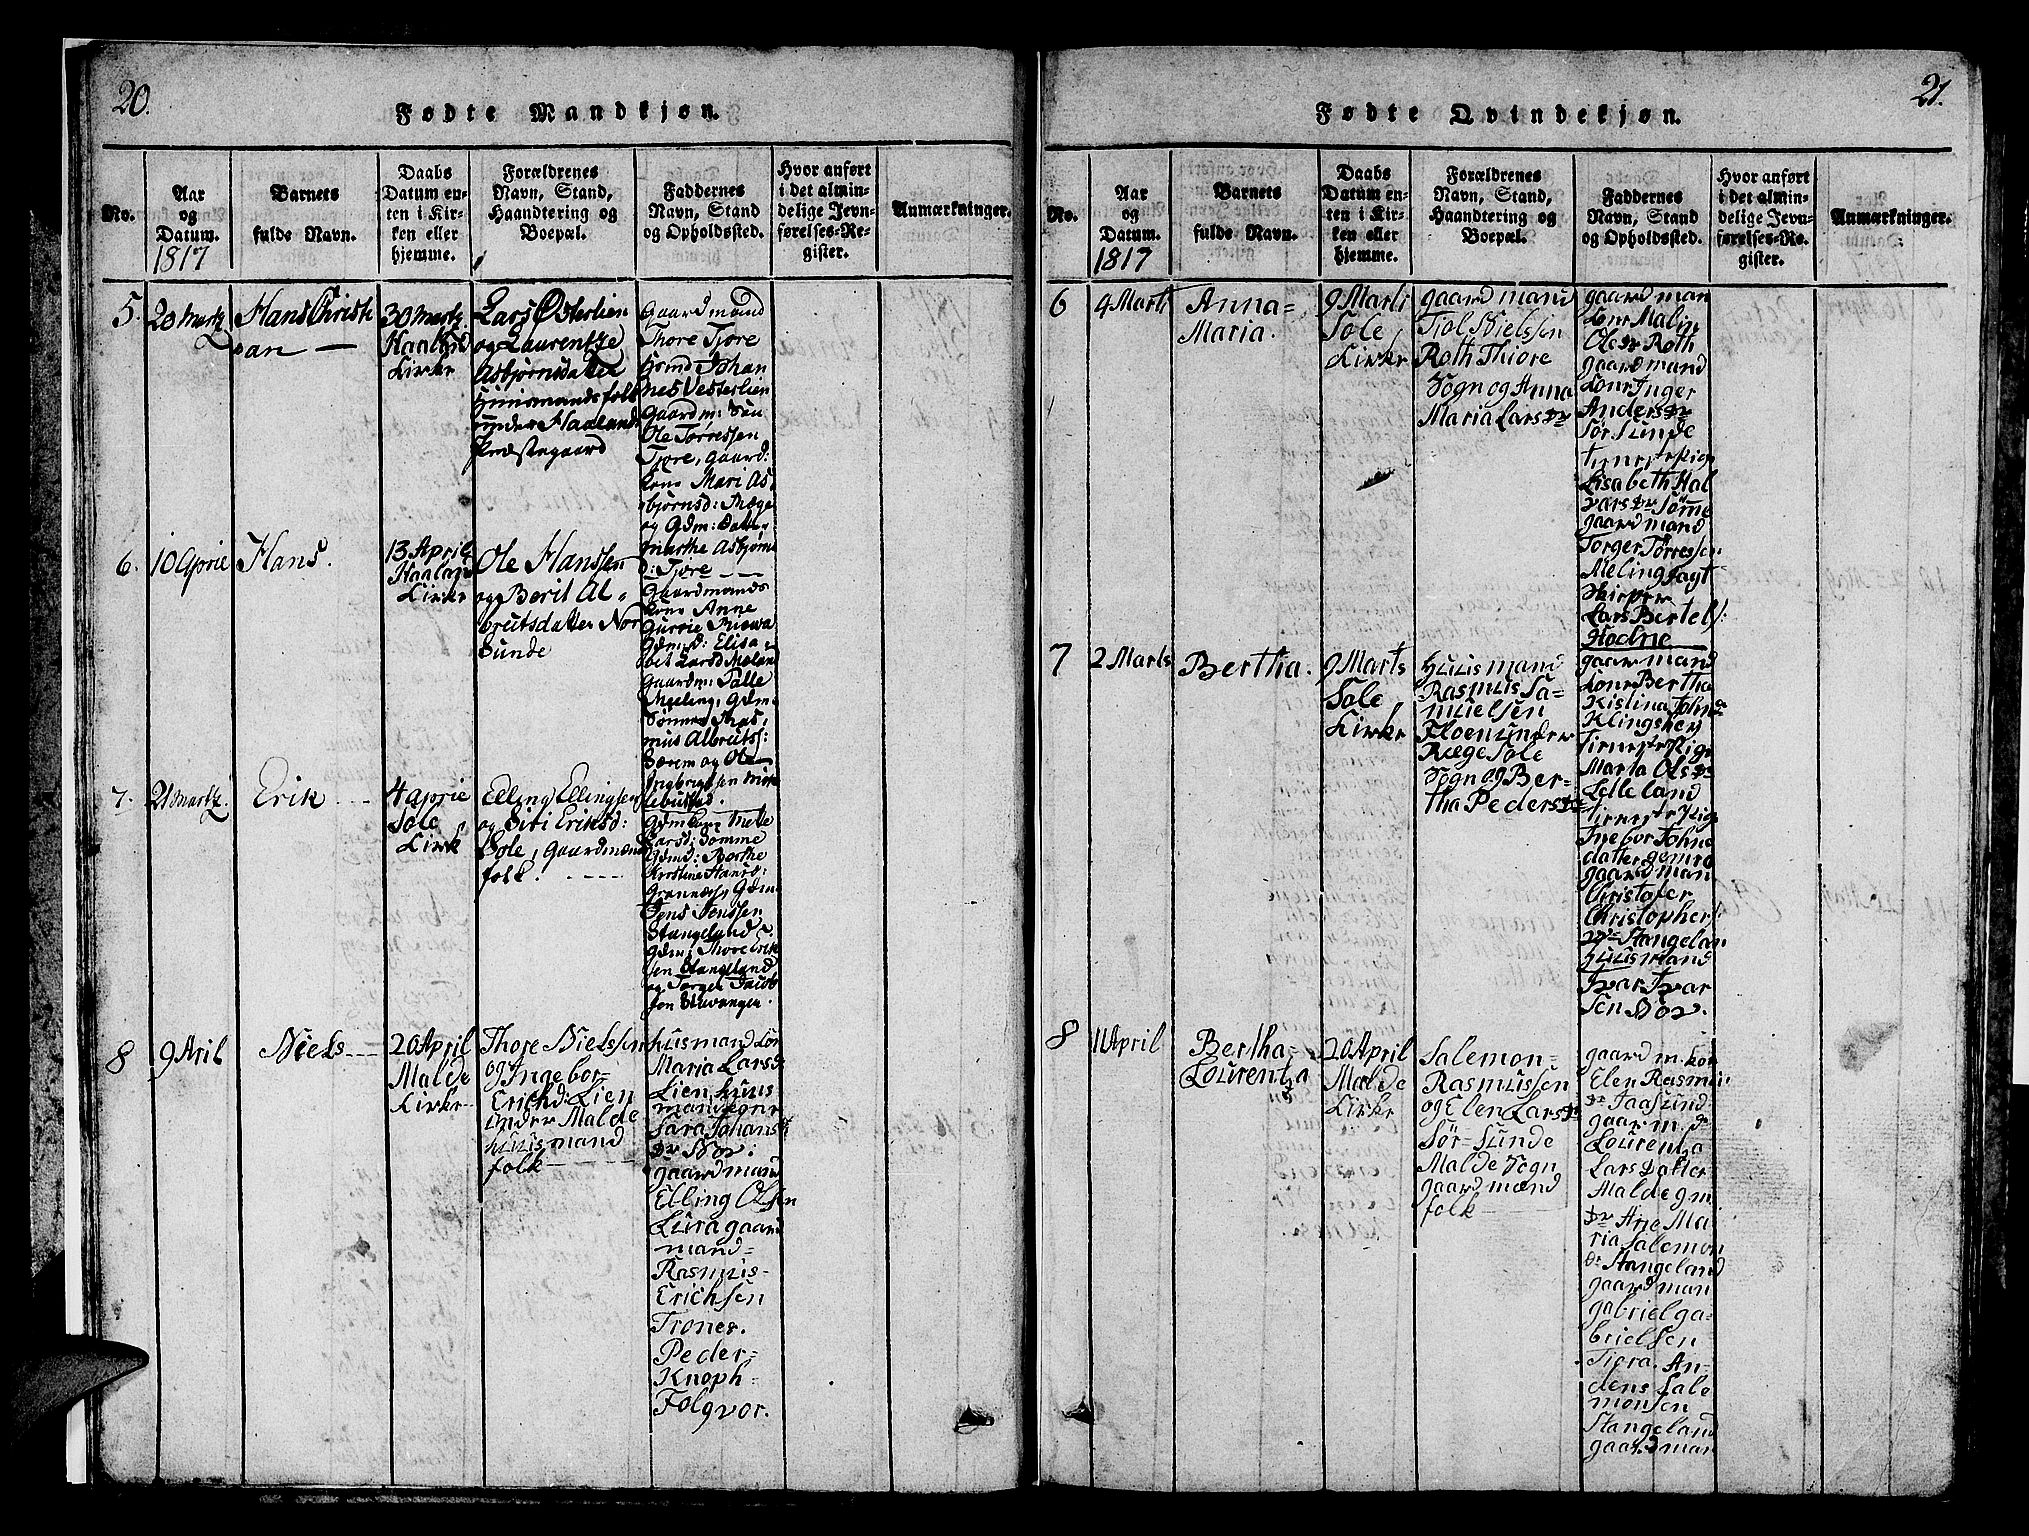 20.
Fødte Mandkjøn.
No.
Aar
og
Datum.
1817
Barnets
fulde Navn.
Daabs
Datum en-
ten i Kir-
ken eller
hjemme.
Forældrenes
Navn, Stand,
Haandtering og
Boepæl.
Faddernes
Navn, Stand
og Opholdssted.
Hvor anført
i det almin-
delige Jevn-
førelses-Re-
gister.
Anmærkninger.
5.
20 Martz
Hans Christi
an
30 Martz
Haaland
Kirke
Lars Østerlien
og Laurentze
Asbjørnsdatter
Huusmandsfolk
under Haaland
Præstegaard
Gaardmand
Thore Tjore
Huusmd Johan
nes Vesterlien
Gaardm: Søn
Ole Tørressen
Tjore, Gaard:
kone Mari As
bjørnsd: Ræge
og Gdm: Datter
Marthe Asbjørns
d: Tjore
6.
10 Aprie
Hans.
13 April
Haaland
Kirke
Ole Hanssen
og Berit Al-
britsdatter Nor
Sunde
Gaardmands
kone Anne
Gurrie
Gdmd: Elisa
bet Larsd Meland
Gaardm: Palle
Meling, Gdm
Sønner Ras
mus Albritss:
Sørem og Ole
Ingbrigtsen
7.
21 Martz.
Erik
4 Aprie
Sole
Kirk
Elling Ellingsen
og Siri Eriksd:
Sole, Gaardmænd
folk.
Gdmkone Mete
Larsd: Sømme
Gdmd: Berthe
Kirstine Hansd:
Grannæs, Gdm
Jens Jonssen
Stangeland
Gdm: Thore Erik
sen Stangeland
og Torger Jacob
sen Stavanger.
8
9 Aril
Niels
20 April
Malde
Kirke
Thore Nielssen
og Ingebor-
Erichd: Lien
under Malde
huusmand
folk
husmand kon
Maria Larsd
Lien huus
mandsegnr
Sara Johans
Dr Nor:
gaardmand
Elling Olsen
Lura gaard
mand=
Rasmus-
Erichsen
Trones.
Peder=
Knoph-
Folgvor.
21.
Fødte Qvindekjøn.
No.
Aar
og
Datum.
1817
Barnets
fulde Navn.
Daabs
Datum en-
ten i Kir-
ken eller
hjemme.
Forældrenes
Navn, Stand,
Haandtering og
Boepæl.
Faddernes
Navn, Stand
og Opholdssted.
Hvor anført
i det almin-
delige Jevn-
førelses-Re-
gister.
Anmærkninger.
6
4 Marti
Anna=
Maria.
9 Marti
Sole
Kirke
gaardmand
Tiol Nielssen
Roth Thiore
Sogn og Anna
Maria Larsdr
gaardman
kone Malin
Olsdr Roth
gaardmand
kone Inger
Andersdr
Sør Sunde
tienestePige
Lisabeth Hal
varsdr Sømme
gaardmand
Torger Tørressen
Meling
Lars Bertels:
Hodne
7
2 Marts
Bertha.
9 Marts
Sole
Kirke
Huusmand
Rasmus Sa=
muelsen
Floen under
Ræge Sole
Sogn og Ber=
tha Pedersdr
gaardmand
kone Bertha
Kistina Johns
Klingshey
tienestePige
Marta Olsdr
Lelleland
tienestePige
Ingebor Johns
datter gimra
gaardmand
Christofer
Christophers:
Stangelan
huusmand
Ivar Ivar
sen Nor.
8
11 April
Bertha=
Lourentza
20 April
Malde
Kirke
Salemon=
Rasmussen
og Elen Larsdr
Sør=Sunde
Malde Sogn
gaardmænd
folk
gaardm. kon
Elen Rasmus
dr Taasund:
gaarm. d
Lourentza
Lars Datter
Malde gm
Dr Ane Ma
ria Salemon
dr Stangeland
gaardman
gabriel ga=
brielsen
Tiora. An=
dens Sale
monsen
Stangeland
gaardman